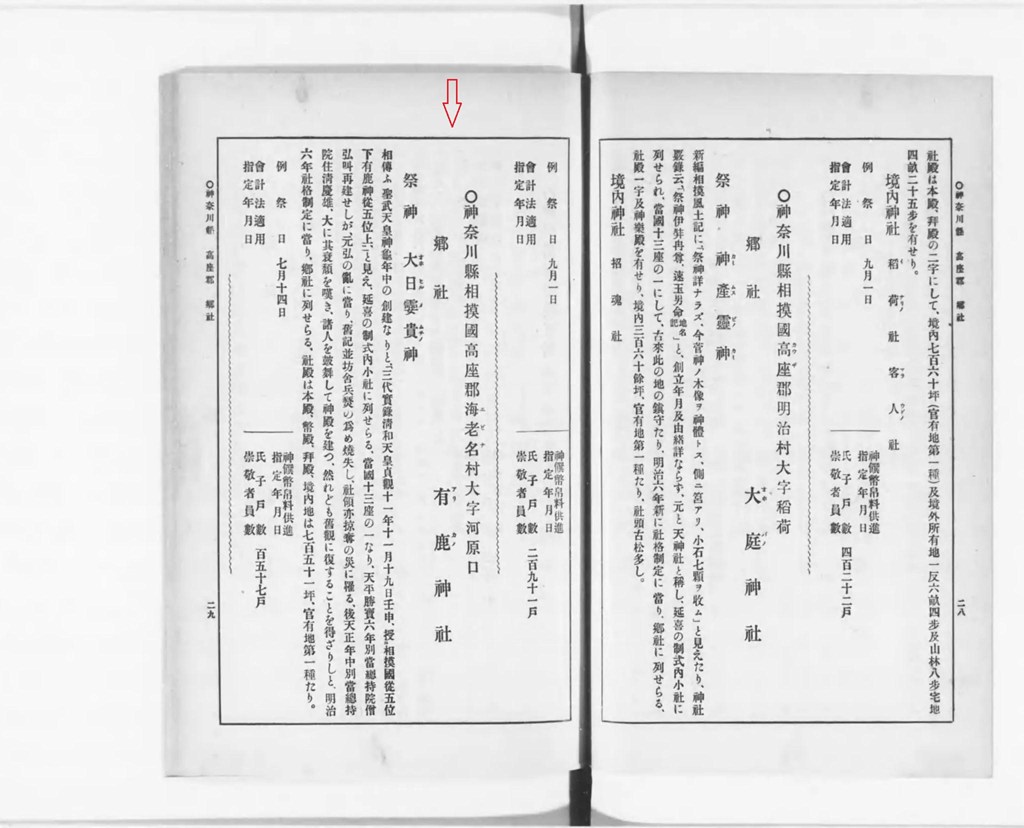 ○神奈川縣　高座郡　鄕社
二八
社殿は本殿、拜殿の二字にして、境內七百六十坪(官有地第一種)及境外所有地一反六畝四步及山林八步宅地
四畝二十五步を有せり。
境內神社　稻荷社　客人社
例祭日　九月一日
會計法適用
指定年月日
神饌幣帛料供進
指定年月日
氏子戶數　四百二十二戶
崇敬者員數
○神奈川縣相摸國高座郡明治村大字稻荷
鄕社　大庭神社
祭神　神產靈神
新編相摸風土記に、「祭神詳ナラズ、今菅神ノ木像ヲ神體トス、側ニ筥アリ、小石七顆ヲ收ム」と見えたり、神社
覈錄云、「祭神伊弉冉尊、速玉男命地名記」と、創立年月及由緖詳ならず、元と天神社と稱し、延喜の制式內小社に
列せられ、當國十三座の一にして、古來此の地の鎭守たり、明治六年新に社格制定に當り、鄕社に列せらる、
社殿一字及神樂殿を有せり、境內三百六十餘坪、官有地第一種たり、社頭古松多し。
境內神社　招魂社
例祭日　九月一日
會計法適用
指定年月日
神饌幣帛料供進
指定年月日
氏子戶數　二百九十一戶
崇敬者員數
○神奈川縣相摸國高座郡海老名村大字河原口
鄕社　有鹿神社
祭神　大日孁貴神
相傳ふ聖武天皇神龜年中の創建なりと、「三代實錄淸和天皇貞觀十一年十一月十九日壬申、授相摸國從五位
下有鹿神從五位上」と見え、延喜の制式內小社に列せらる、當國十三座の一なり、天平勝寶六年別當總持院僧
弘叫再建せしが、元弘の亂に當り、舊記並坊舍兵燹の爲め燒失し、社領亦掠奪の災に罹る、後天正年中別當總持
院住淸慶雄、大に其衰頽を嘆き、諸人を鼓舞して神殿を建つ、然れども舊觀に復することを得ざりしと、明治
六年社格制定に當り、鄕社に列せらる、社殿は本殿、幣殿、拜殿、境內地は七百五十一坪、官有地第一種たり。
例祭日　七月十四日
會計法適用
指定年月日
神饌幣帛料供進
指定年月日
氏子戶數　百五十七戶
崇敬者員數
○神奈川縣　高座郡　鄕社
二九